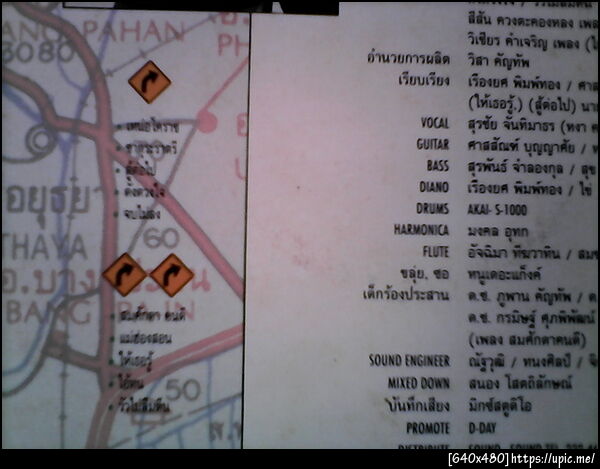 ANG PAHAN
3080
PH
• เหน่อโคราช
• ซากุระราตรี
• สู้ต่อไป
• ดั่งดวงใจ
• จบไม่ลง
อยุธยา
THAYA
60
อ.บาง
BANG PA-IN
• สมศักดา ยนดี
• แม่ฮ่องสอน
• ให้เธอรู้
• ไอ้หน
• วัวไม่ลืมตีน
50
สีสัน ควงตะคองหลง
วิเชียร คำเจริญ เพลง
อำนวยการผลิต วิสา คัญทัพ
เรียบเรียง เรืองยศ พิมพ์ทอง /
(ให้เธอรู้,) (สู้ต่อไป)
VOCAL สุรชัย จันทิมาธร (หงา
GUITAR ศาสสัณฑ์ บุญญาศัย /
BASS สุรพันธ์ จำลองกุล / สุข
DIANO เรืองยศ พิมพ์ทอง / ไข่
DRUMS AKAI- S-1000
HARMONICA มงคล อุทก
FLUTE อัจฉิมา ทีฆวาทิน /
ขลุ่ย, ซอ หนูเดอะแก็งค์
เด็กร้องประสาน ด.ช. ภูพาน คัญทัพ /
ด.ช. กรมิษฐ์ ศุภพิพัฒน์
(เพลง สมศักดาคนดี)
SOUND ENGINEER ณัฐวุฒิ / ทนงศิลป์ /
MIXED DOWN สนอง โสตถิลักษณ์
บันทึกเสียง มิกซ์สตูดิโอ
PROMOTE D-DAY
[640x480]https://upic.me/